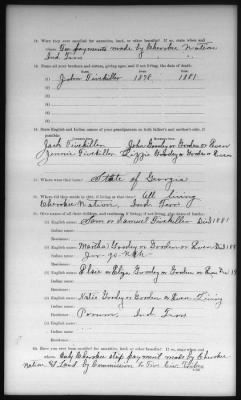 14. Were they ever enrolled for annuities, land, or other benefits? If so, state when and
where: Gen payments made by Cherokee Nation
Ind Terr
15. Name all your brothers and sisters, giving ages, and if not living, the date of death:
(1) John Sixkiller 1878 1881
(2)
(3)
(4)
(5)
(6)
16. State English and Indian names of your grandparents on both father's and mother's side, if
possible:
Jack Sixkiller John Goody or Gooden or Ruen
Jennie Sixkiller Lizzie Goody or Gooden or Ruen
17. Where were they born? State of Georgia
18. Where did they reside in 1851, if living at that time? All living
Cherokee Nation, Ind Terr
(1) English name: Sam or Samuel Sixkiller Died 1881
Indian name:
Residence:
(2) English name: Martha Goody or Gooden or Ruen Died
Indian name:
Residence:
(3) English name: or Eliza Goody or Gooden or Ruen
Indian name:
Residence:
(4) English name: Katie Goody or Gooden or Ruen Living
Indian name:
Residence: Porum, Ind Terr
(5) English name:
Indian name:
Residence:
20. Have you ever been enrolled for annuities, land, or other benefits? If so, state when and
where: Only Cherokee strip payment made by Cherokee
Nation & Land by Commission to Five Civ. Tribes